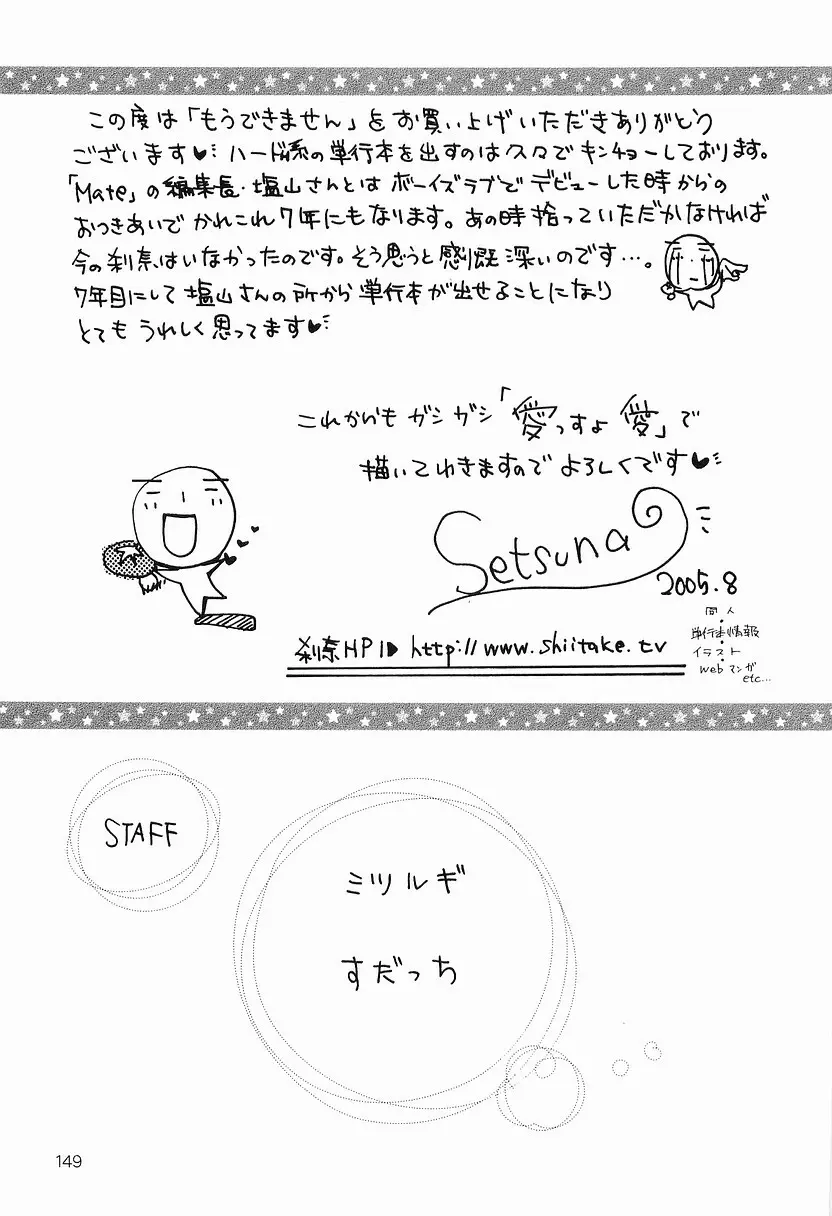 この度は「もうできません」をお買い上げいただきありがとう
ございます♥ ハード系の単行本を出すのは久々でキンチョーしております。
「Mate」の編集長・塩山さんとはボーイズラブでデビューした時からの
おつきあいでかれこれ7年にもなります。あの時拾っていただかなければ
今の刹奈はいなかったのです。そう思うと感慨深いのです…。
7年目にして塩山さんの所から単行本が出せることになり
とてもうれしく思ってます♥
これからもガシガシ「愛っすよ愛」で
描いてゆきますのでよろしくです♥
Setsuna
2005.8
刹奈HP http://www.shiitake.tv
同人
・
単行本情報
・
イラスト
・
Webマンガ
etc...
STAFF
ミツルギ
すだっち
149